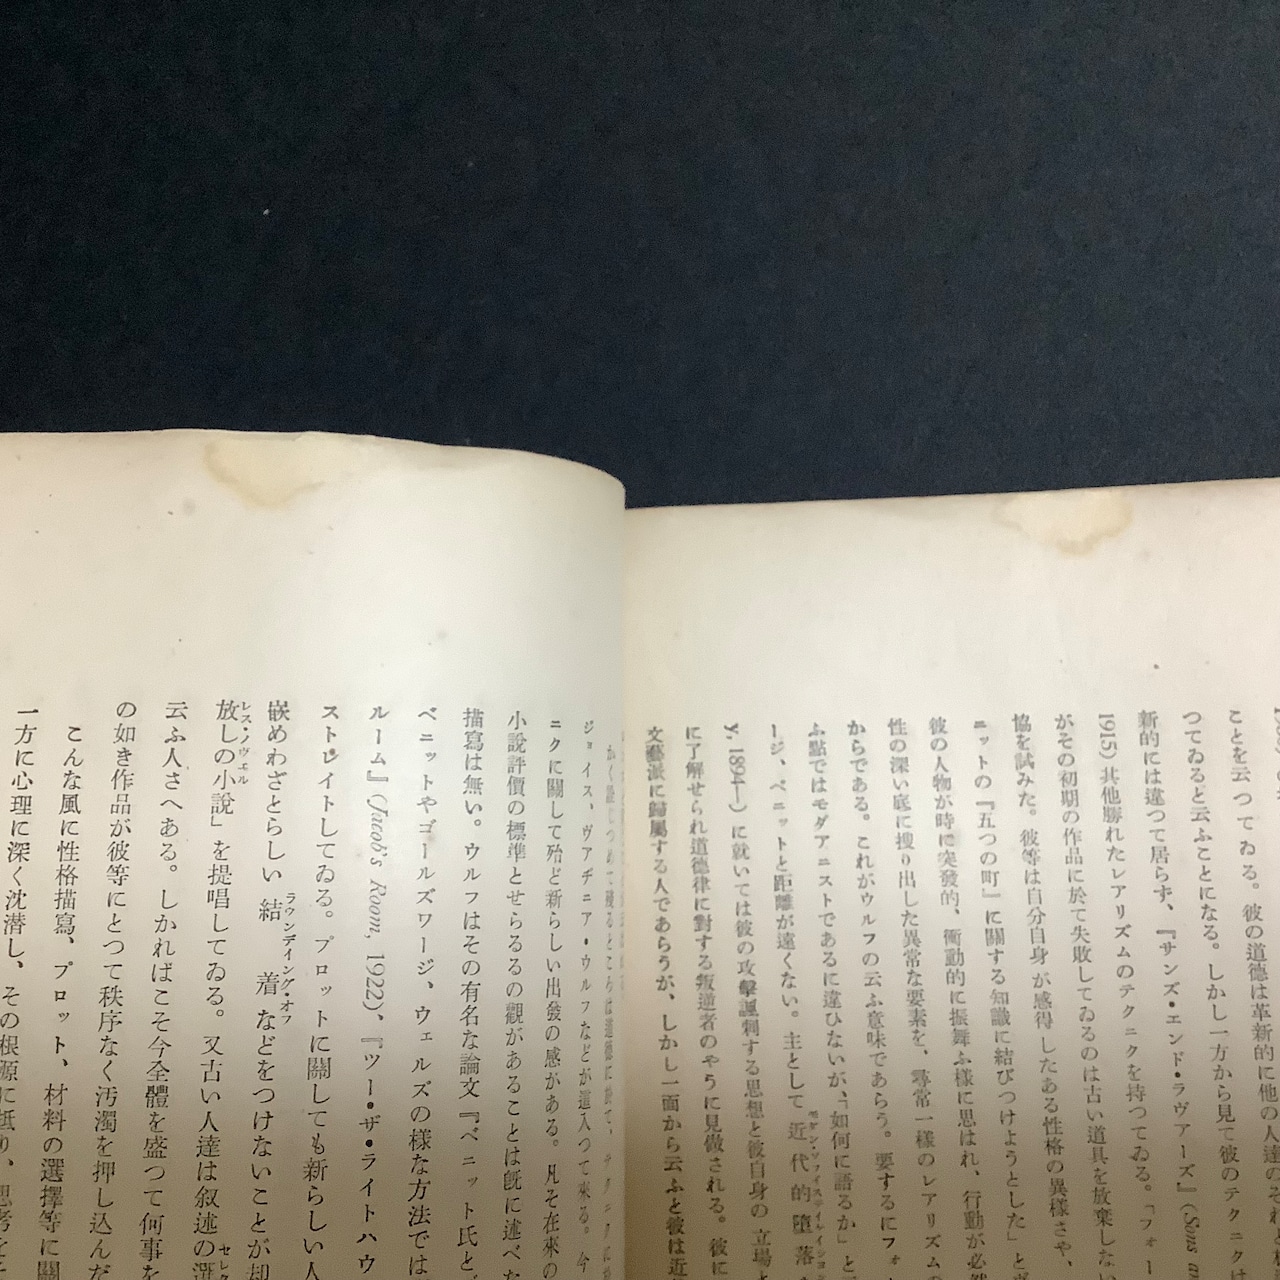 ことを云つてゐる。彼の道德は革新的に他の人達のそれと
つてゐると云ふことになる。しかし一方から見て彼のテクニクは
新的には違つて居らず、『サンズ・エンド・ラヴアーズ』(Sons
1915) 其他勝れたレアリズムのテクニクを持つてゐる。「フォー
がその初期の作品に於て失敗してゐるのは古い道具を放棄しない
協を試みた。彼等は自分自身が感得したある性格の異樣さや、
ニットの『五つの町』に關する知識に結びつけようとした」と
彼の人物が時に突發的、衝動的に振舞ふ樣に思はれ、行動が必然
性の深い底に搜り出した異常な要素を、尋常一樣のレアリズムの
からである。これがウルフの云ふ意味であらう。要するにフォ
ふ點ではモダアニストであるに違ひないが、「如何に語るか」と
ージ、ベニットと距離が遠くない。主として近代的墮落
y, 1894—) に就いては彼の攻擊諷刺する思想と彼自身の立場と
に了解せられ道德律に對する叛逆者のやうに見做される。彼に
文藝派に歸屬する人であらうが、しかし一面から云ふと彼は近
ジョイス、ヴアヂニア・ウルフなどが這入つて來る。今
ニクに關して殆ど新らしい出發の感がある。凡そ在來の
小說評價の標準とせらるるの觀があることは旣に述べた
描寫は無い。ウルフはその有名な論文『ベニット氏と
ベニットやゴールズワージ、ウェルズの樣な方法では
ルーム』(Jacob's Room, 1922)、『ツー・ザ・ライトハウ
ストレイトしてゐる。プロットに關しても新らしい人
嵌めわざとらしい結着などをつけないことが却
ラウンディング・オフ
放しの小說」を提唱してゐる。又古い人達は叙述の選
レス・ノヴェル
云ふ人さへある。しかればこそ今全體を盛つて何事を
の如き作品が彼等にとつて秩序なく汚濁を押し込んだ
こんな風に性格描寫、プロット、材料の選擇等に關
一方に心理に深く沈潜し、その根源に抵り、思考を